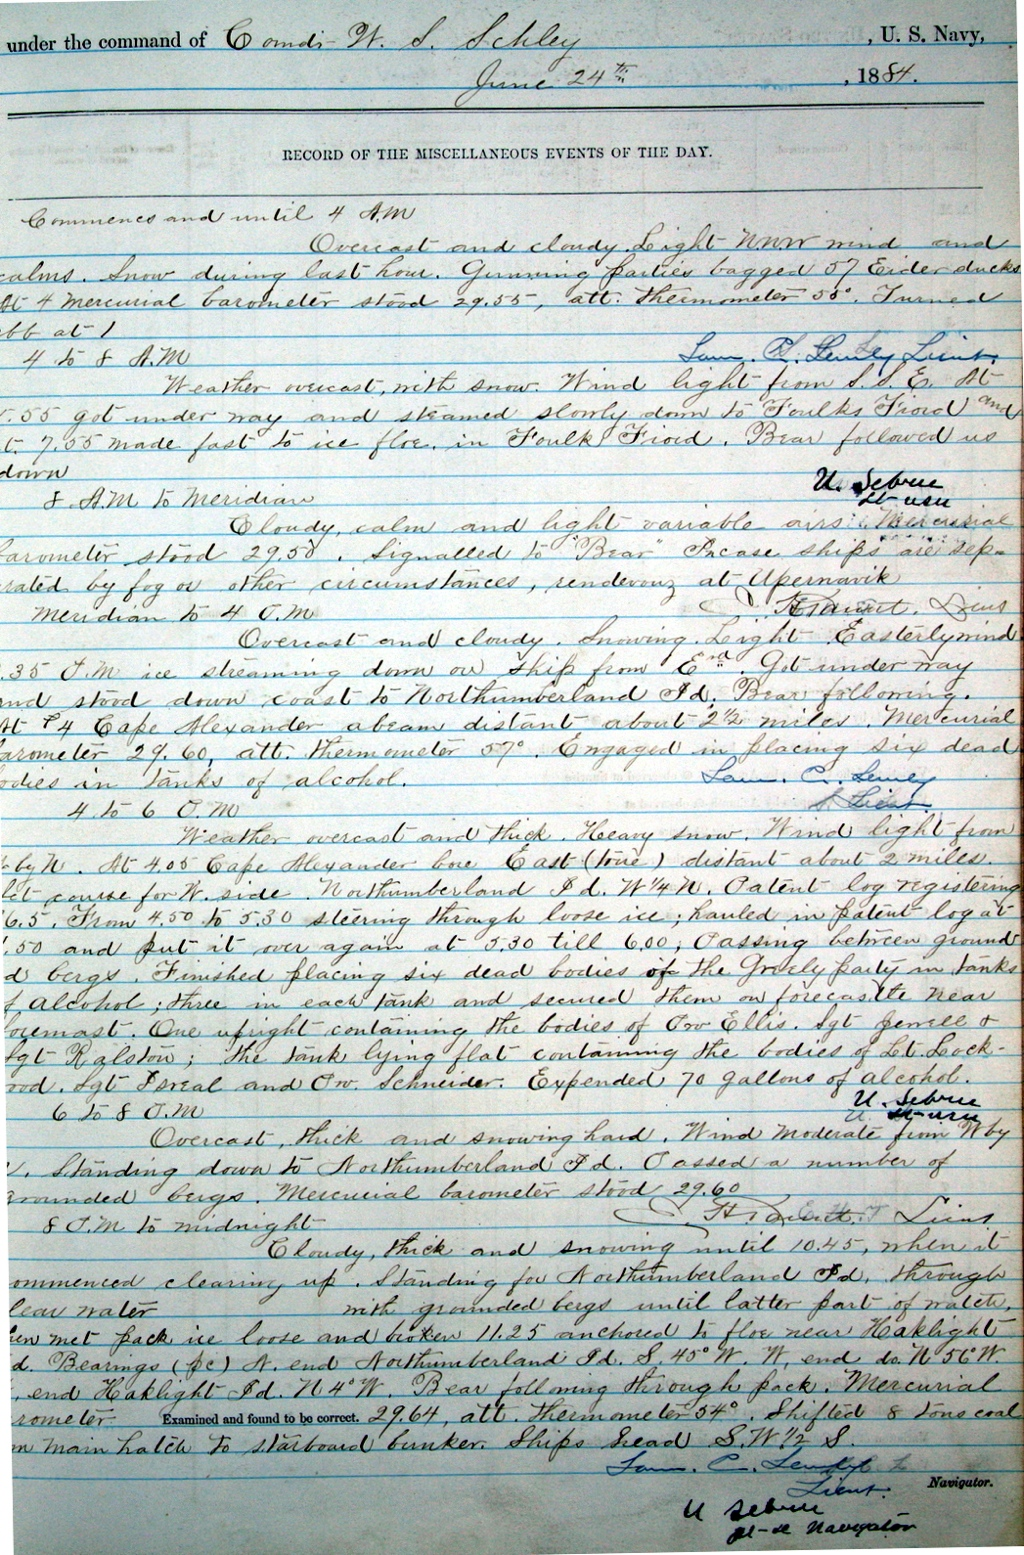 under the command of Comdr W. S. Schley , U. S. Navy,
June 24th , 1884.
RECORD OF THE MISCELLANEOUS EVENTS OF THE DAY.
Commences and until 4 A.M
Overcast and cloudy. Light NNW wind and
calms. Snow during last hour. Gunning parties bagged 57 Eider ducks
At 4 mercurial barometer stood 29.55, att. thermometer 55°. Turned
ebb at 1
4 to 8 A.M
Sam. C. Lemly Lieut.
Weather overcast, with snow. Wind light from S.S.E. At
.55 got under way and steamed slowly down to Foulks Fiord and
t. 7.55 made fast to ice floe in Foulk Fiord. Bear followed us
down
U. Sebree
Lt USN
8 A.M to Meridian
Cloudy, calm and light variable airs. Mercurial
barometer stood 29.50. Signalled to "Bear" Incase ships are sep-
rated by fog or other circumstances, rendevouz at Upernavik
Lieut
Meridian to 4 P.M
Overcast and cloudy. Snowing. Light Easterly wind
.35 P.M ice streaming down on ship from Erd. Got under way
and stood down coast to Northumberland Id, Bear following.
At 4 Cape Alexander abeam distant about 2½ miles. Mercurial
barometer 29.60, att. thermometer 57°. Engaged in placing six dead
bodies in tanks of alcohol.
Sam. C. Lemly
Lieut.
4 to 6 P.M
Weather overcast and thick. Heavy snow. Wind light from
by N. At 4.05 Cape Alexander bore East (true) distant about 2 miles.
Set course for W. side Northumberland Id. W¼N. Patent log registering
6.5. From 4.50 to 5.30 steering through loose ice; hauled in patent log at
.50 and put it over again at 5.30 till 6.00; Passing between ground-
d bergs. Finished placing six dead bodies of the Greely party in tanks
of alcohol; three in each tank and secured them on forecastle near
foremast. One upright containing the bodies of Prv Ellis. Sgt Jewell &
Sgt Ralston; the tank lying flat containing the bodies of Lt. Lock-
ood. Sgt Isreal and Prv. Schneider. Expended 70 gallons of alcohol.
U. Sebree
Lt USN
6 to 8 P.M
Overcast, thick and snowing hard. Wind moderate from W by
. Standing down to Northumberland Id. Passed a number of
grounded bergs. Mercurial barometer stood 29.60
Lieut
8 P.M to midnight
Cloudy, thick and snowing until 10.45, when it
commenced clearing up. Standing for Northumberland Id, through
clear water with grounded bergs until latter part of watch,
hen met pack ice loose and broken 11.25 anchored to floe near Haklight
d. Bearings (pc) N. end Northumberland Id. S. 45° W. W. end do. N 56° W.
. end Haklight Id. N 4° W. Bear following through pack. Mercurial
rometer Examined and found to be correct. 29.64, att. thermometer 54°. Shifted 8 tons coal
m main hatch to starboard bunker. Ships head S.W ½ S.
Sam. C. Lemly
Lieut.
Navigator.
U Sebree
Lt & Navigator